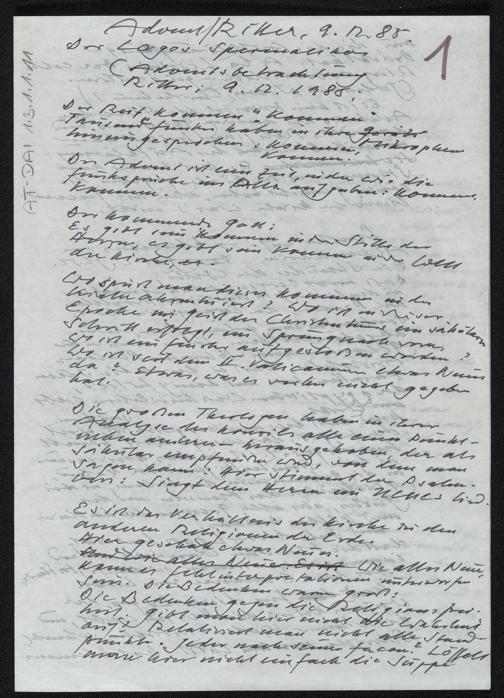 Advent/Ritter, 9.12.88.
1
Der Logos Spermatikos
(Adventsbetrachtung
Ritter, 9.12.1988.
AT-DAI 13.1.1.11
Der Ruf kommen "Kommen"
Tausend haben in ihre
hineingesprochen: Kommen,
kommen.
Der Advent ist eine Zeit, in der wir die
ins All aufgeben: Kommen,
kommen.
Der kommende Gott:
Es gibt ein Kommen in der Stille des
Herzens, es gibt ein Kommen in der Welt
der Kirche, es
Wo spürt man dieses Kommen in der
Kirche ? Wo ist in dieser
Epoche im Geist des Christentums ein
Schritt erfolgt, ein Sprung nach vorn,
wo ist ein Fenster aufgestoßen worden?
Wo ist seit dem II. Vaticanum etwas Neues
da? Etwas, was es vorher nicht gegeben
hat.
Die großen Theologen haben in ihrer
Analyse des Konzils alle einen Punkt
neben anderen herausgehoben, der als
säkular empfunden wird, von dem man
sagen kann: Hier stimmt der Psalmen-
vers: Singt dem Herrn ein neues Lied.
Es ist das Verhältnis der Kirche zu den
anderen Religionen der Erde.
Hier geschah etwas Neues.
Wie alles Neue,
kann es Fehlinterpretationen unterworfen
sein. Die Bedenken waren groß:
Die Bedenken gegen die Religionsfrei-
heit, gibt man hier nicht die Wahrheit
auf? Relativiert man nicht alle Stand-
punkte? Jeder nach seiner Façon? Löffelt
man hier nicht einfach die Suppe